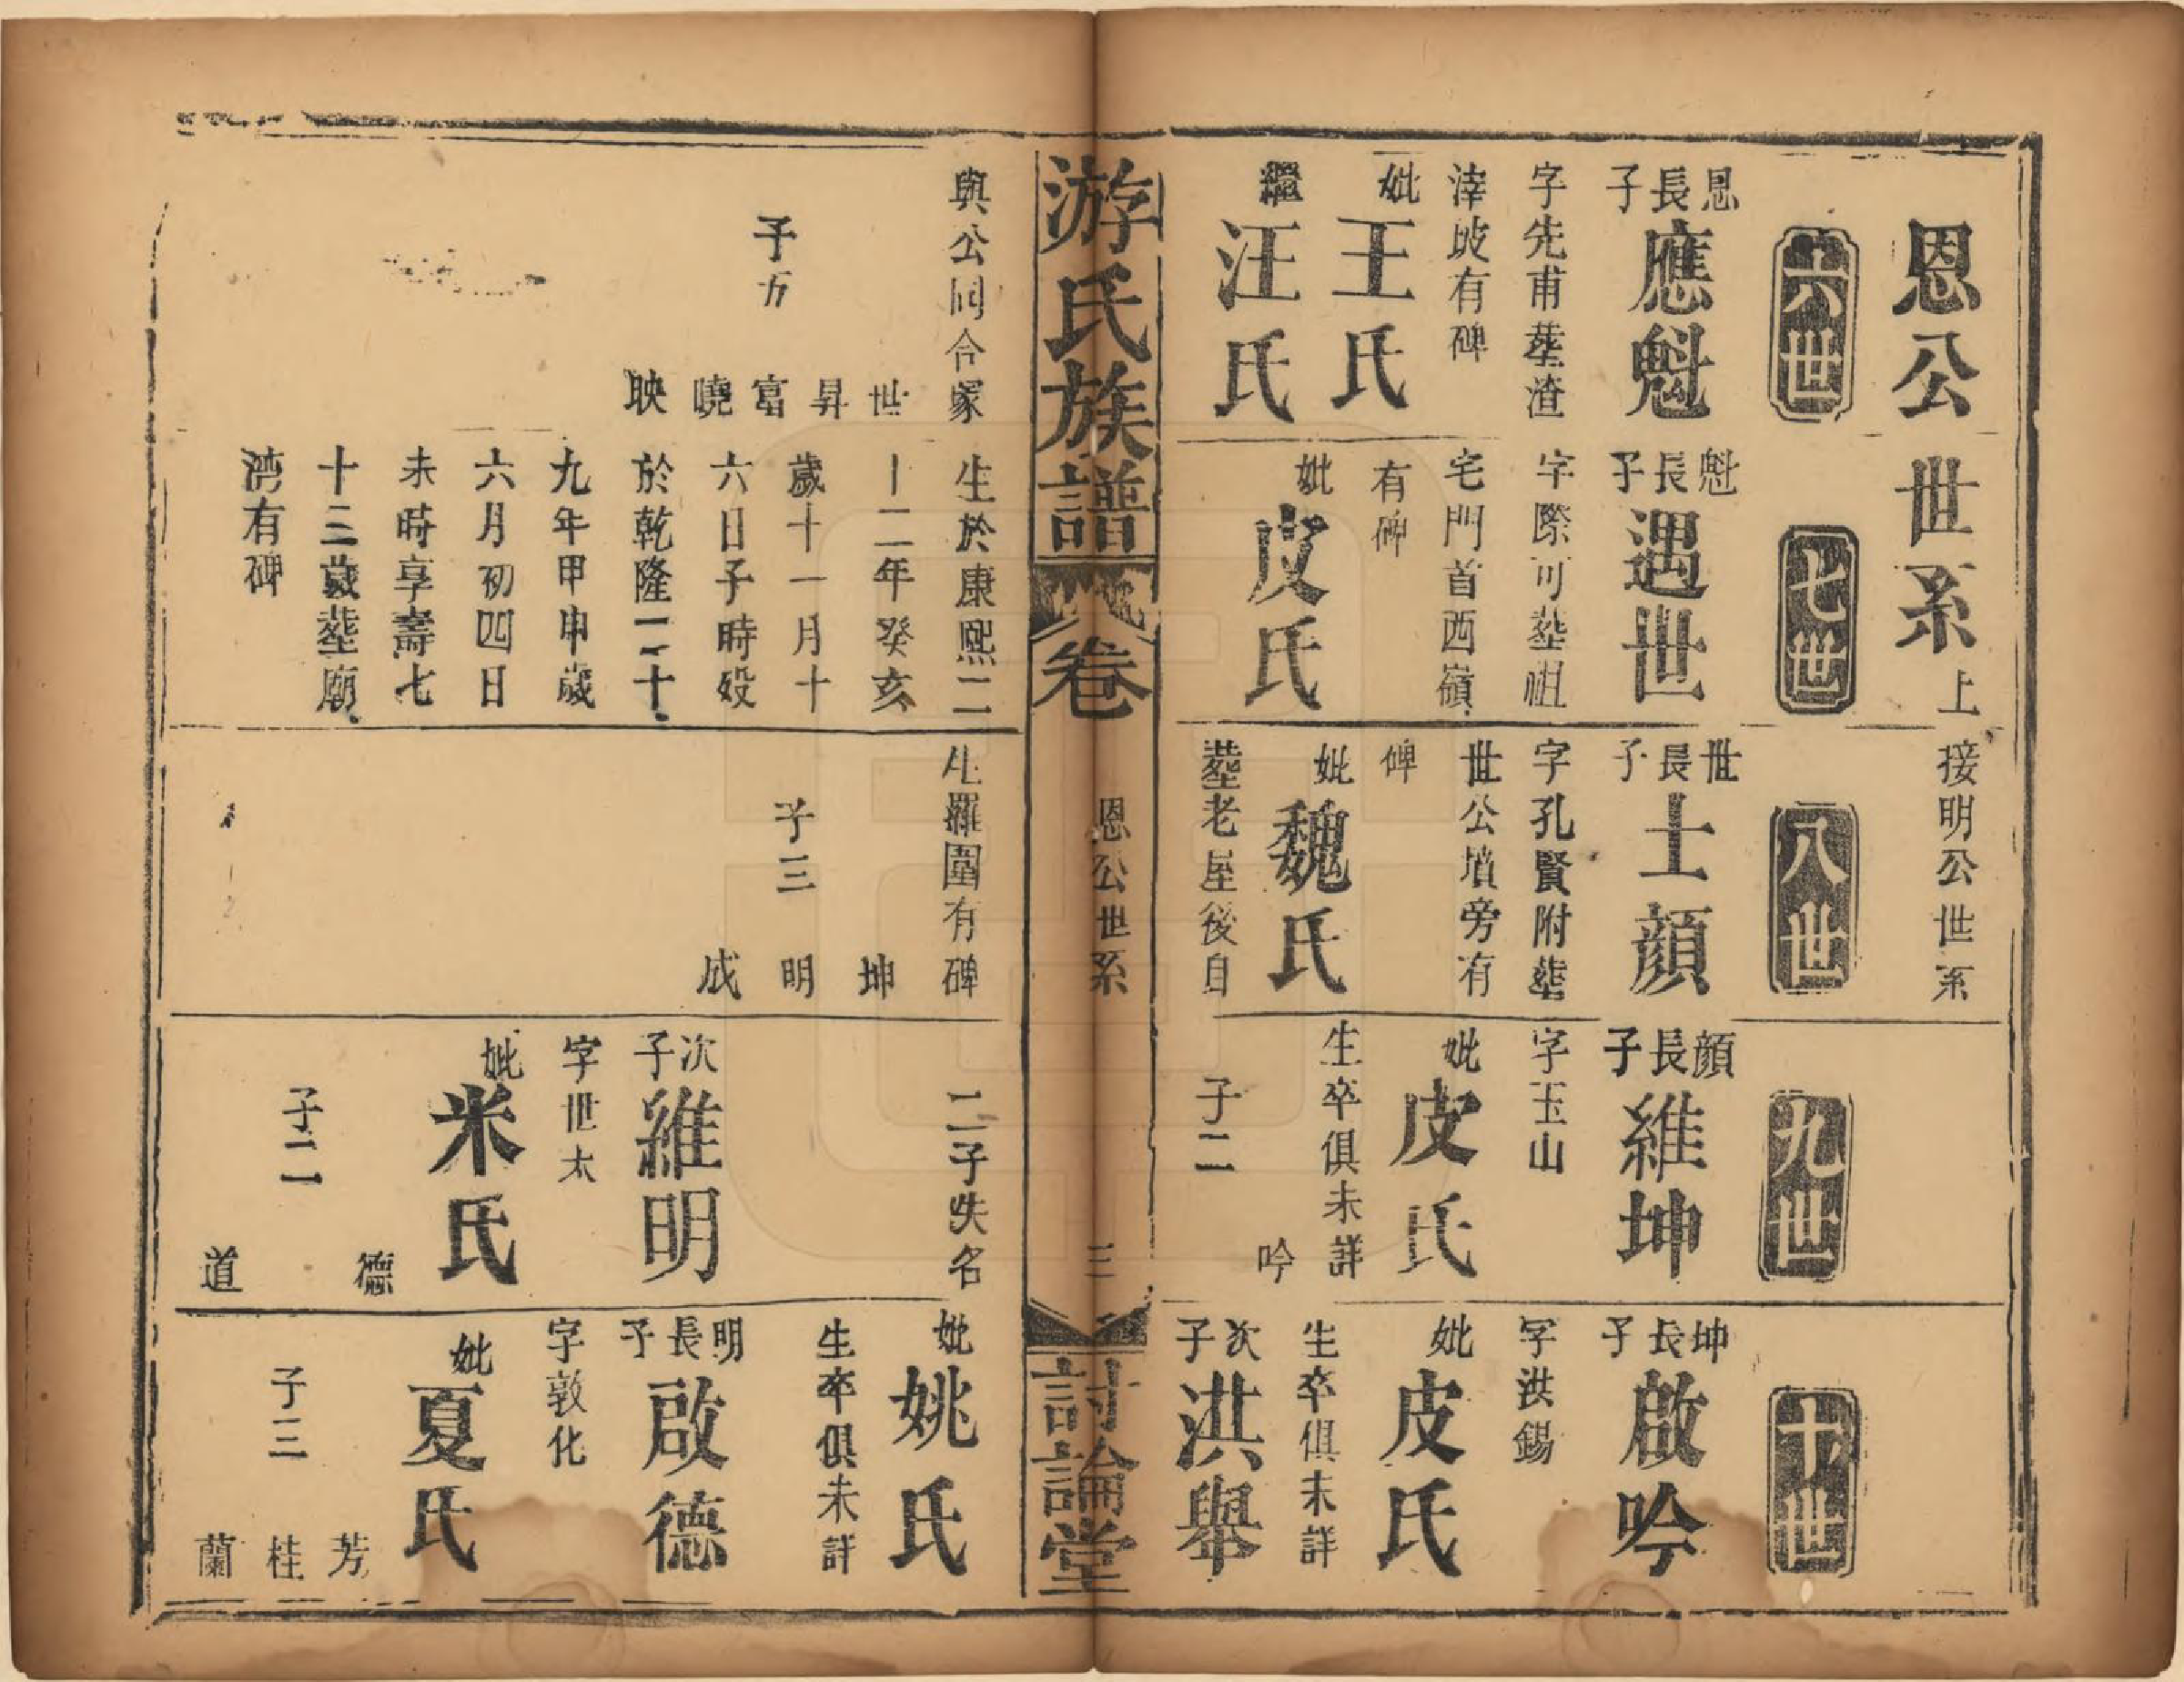 恩公世系上 接明公世系
六世
恩長子 應魁
字先甫塟渣
涬歧有碑
妣 王氏
繼 汪氏
七世
魁長子 遇世
字際可塟祖
宅門首西嶺
有碑
妣 皮氏
八世
世長子 士顔
字孔賢附塟
世公墳旁有
碑
妣 魏氏
塟老屋後自
九世
顔長子 維坤
字玉山
妣 皮氏
生卒俱未詳
子二 吟
十世
坤長子 啟吟
字洪錫
妣 皮氏
生卒俱未詳
次子 洪舉
游氏族譜 卷 恩公世系 三 討論堂
與公同合冢
子五 世 昇 富 曉 映
生於康熙二
十二年癸亥
歲十一月十
六日子時殁
於乾隆二十
九年甲申歲
六月初四日
未時享壽七
十二歲塟廟
湾有碑
生羅圍有碑
子三 坤 明 成
二子失名
次子 維明
字世太
妣 米氏
子二 德 道
妣 姚氏
生卒俱未詳
明長子 啟德
字敦化
妣 夏氏
子三 芳 桂 蘭